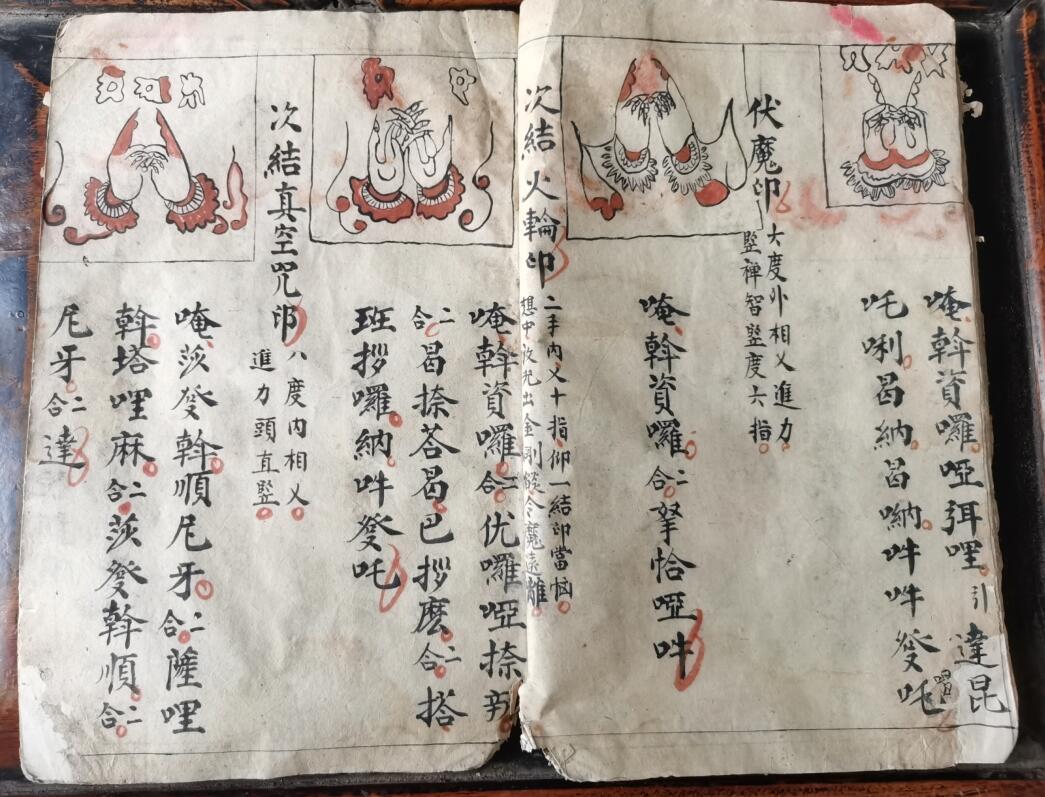 唵斡資囉啞弭哩引達昆
吒唎曷納曷㘨吽吽發吒
伏魔印
大度外相乂進力
竪禅智竪度六指
唵斡資囉二合拏恰啞吽
次結火輪印
二手內乂十指仰一結印當㐫
想中放光出金剛燄令魔遠離
唵斡資囉二合优囉啞捺
二合曷捺荅曷巴拶麽二合搭
班拶囉納吽發吒
次結真空咒印
八度內相乂
進力頭直竪
唵莎發斡順尼牙二合薩哩
斡塔哩麻二合莎發斡順二合
尼牙二合達